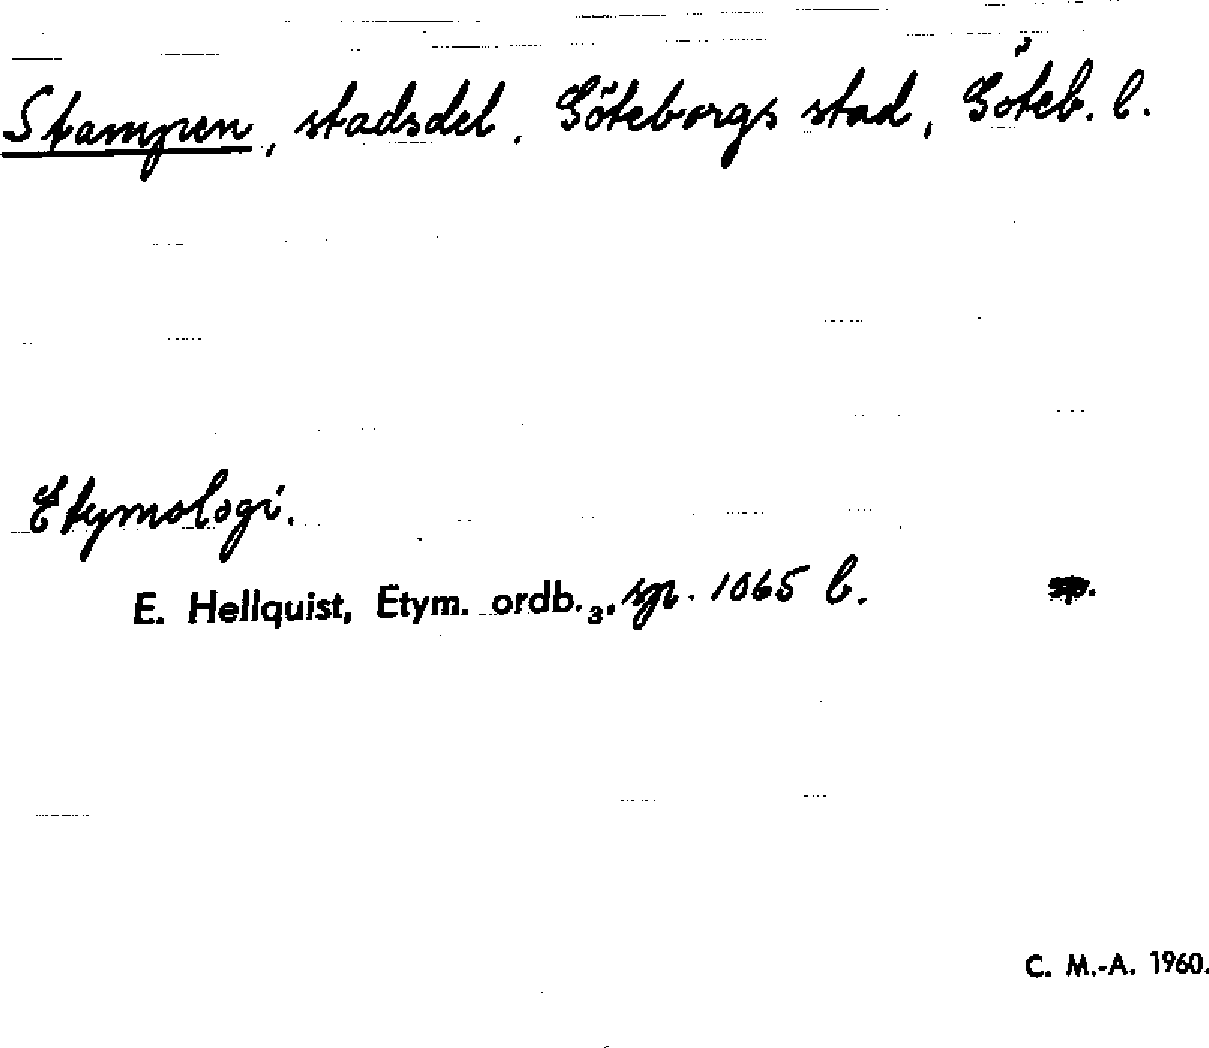 Stampen, stadsdel. Göteborgs stad, Göteb. l.
Etymologi.
E. Hellquist, Etym. ordb.₃, sp. 1065 b.
C. M.-A. 1960.